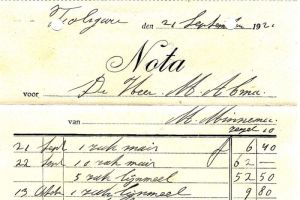 den 21 September 1921
Nota
voor De Heer M. Abma
van M. Minnema
zegel 10
21 Sept 1 zak mais f 6 40
22 Sept 10 zak mais 62 —
5 zak lijnmeel 52 50
13 Octob 1 zak lijnmeel 9 80